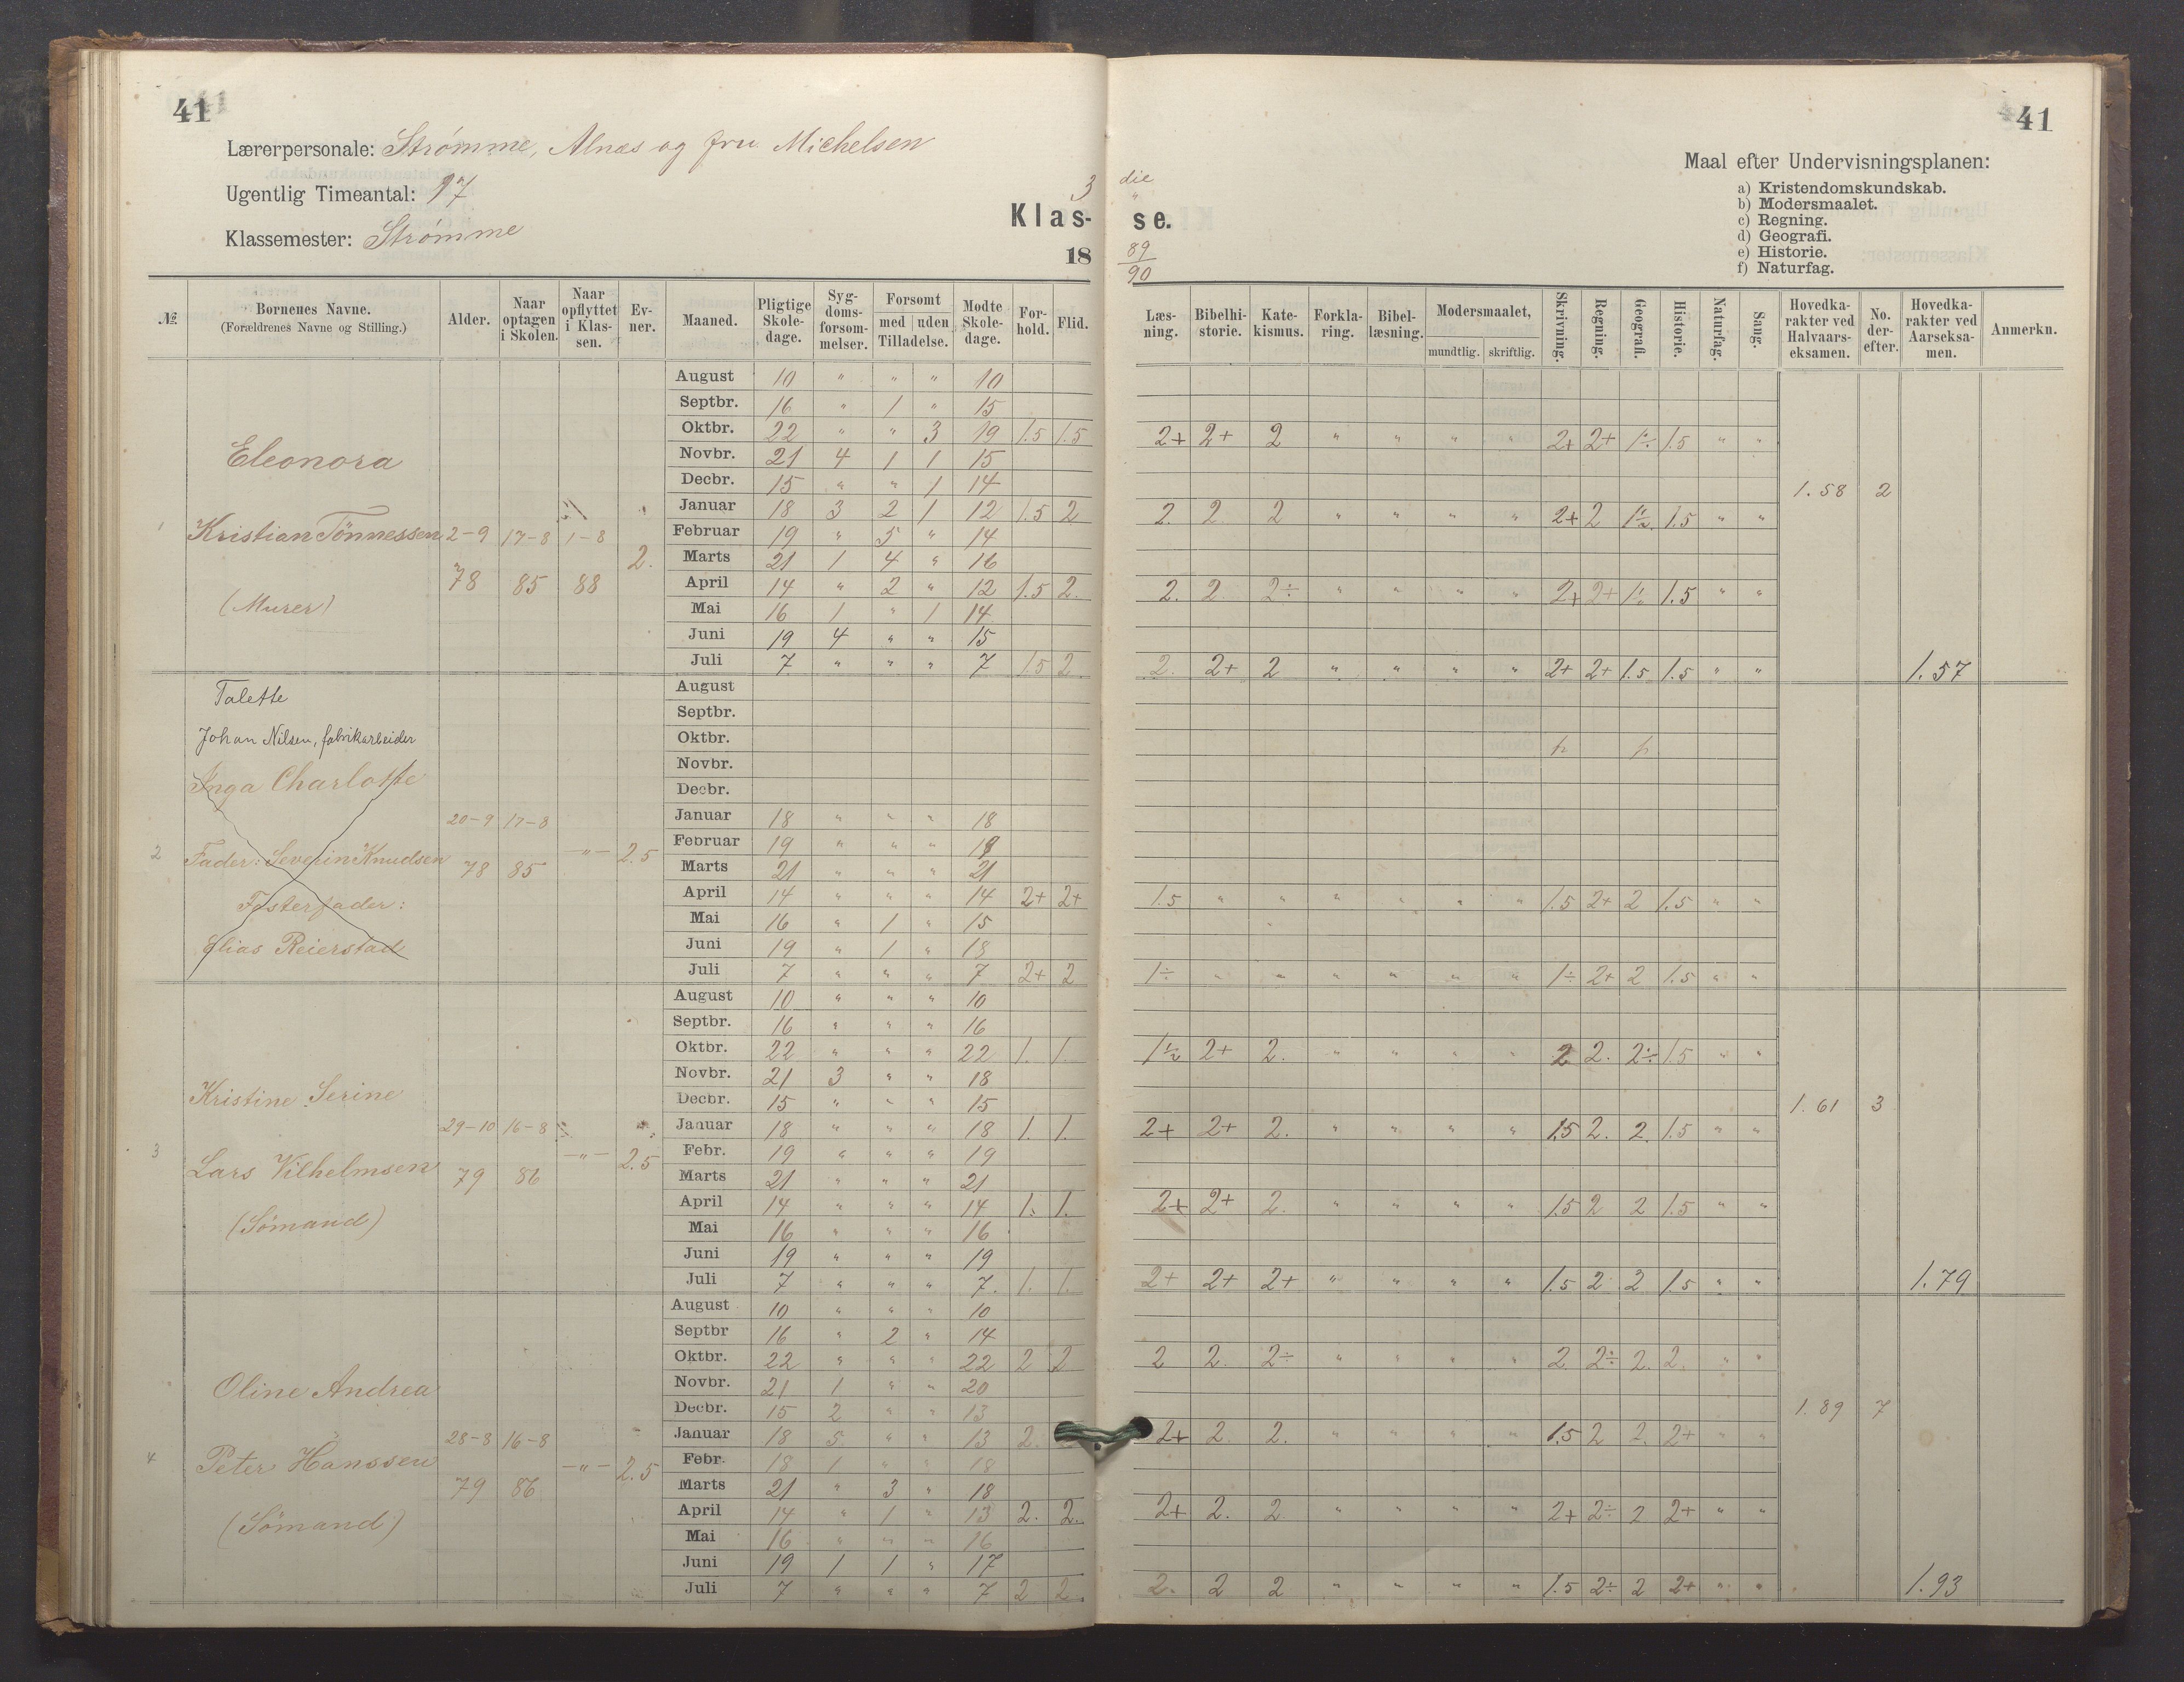 41
Lærerpersonale: Strømme, Alnæs og fru Michelsen
Ugentlig Timeantal: 17
Klassemester: Strømme
3
Klas-
18
№ | Bornenes Navne. (Forældrenes Navne og Stilling.) | Alder. | Naar optagen i Skolen. | Naar opflyttet i Klassen. | Evner. | Maaned. | Pligtige Skoledage. | Sygdomsforsommelser. | Forsomt med | uden Tilladelse. | Modte Skoledage. | Forhold. | Flid.
1 Eleonora
Kristian Tönnessen 2-9 17-8 1-8
78 85 88 2.
(Murer)
August 10 " " " 10
Septbr. 16 " 1 " 15
Oktbr. 22 " " 3 19 1.5 1.5
Novbr. 21 4 1 1 15
Decbr. 15 " " 1 14
Januar 18 3 2 1 12 1.5 2
Februar 19 " 5 " 14
Marts 21 1 4 " 16
April 14 " 2 " 12 1.5 2.
Mai 16 1 " 1 14
Juni 19 4 " " 15
Juli 7 " " " 7 1.5 2
Talette
Johan Nilsen, fabrikarbeider
Inga Charlotte
20-9 17-8
2 Fader: Severin Knudsen 78 85 -"- 2.5
Fosterfader:
Elias Reierstad
August
Septbr.
Oktbr.
Novbr.
Decbr.
Januar 18 " " " 18
Februar 19 " " " 19
Marts 21 " " " 21
April 14 " " " 14 2+ 2+
Mai 16 " 1 " 15
Juni 19 " 1 " 18
Juli 7 " " " 7 2+ 2
Kristine Serine
29-10 16-8
3 Lars Vilhelmsen 79 86 -"- 2.5
(Sömand)
August 10 " " " 10
Septbr. 16 " " " 16
Oktbr. 22 " " " 22 1. 1.
Novbr. 21 3 " " 18
Decbr. 15 " " " 15
Januar 18 " " " 18 1. 1.
Febr. 19 " " " 19
Marts 21 " " " 21
April 14 " " " 14 1. 1.
Mai 16 " " " 16
Juni 19 " " " 19
Juli 7 " " " 7. 1. 1.
Oline Andrea
28-8 16-8
4 Peter Hanssen 79 86 -"- 2.5
(Sömand)
August 10 " " " 10
Septbr 16 " 2 " 14
Oktbr. 22 " " " 22 2 2
Novbr. 21 1 " " 20
Decbr. 15 2 " " 13
Januar 18 5 " " 13 2.
Febr. 18 1 " " 18
Marts 21 " 3 " 18
April 14 " 1 " 13 2. 2.
Mai 16 " " " 16
Juni 19 1 1 " 17
Juli 7 " " " 7 2 2
41
Maal efter Undervisningsplanen:
a) Kristendomskundskab.
b) Modersmaalet.
c) Regning.
d) Geografi.
e) Historie.
f) Naturfag.
die
"
se.
89
90
Læsning. | Bibelhistorie. | Katekismus. | Forklaring. | Bibellæsning. | Modersmaalet, mundtlig. | skriftlig. | Skrivning. | Regning. | Geografi. | Historie. | Naturfag. | Sang. | Hovedkarakter ved Halvaarseksamen. | No. derefter. | Hovedkarakter ved Aarseksamen. | Anmerkn.
2+ 2+ 2 " " " " 2+ 2+ 1÷ 1.5 " "
1.58 2
2. 2 2 " " " " 2+ 2 1½ 1.5 " "
2. 2. 2÷ " " " " 2+ 2+ 1½ 1.5 " "
2. 2+ 2 " " " " 2+ 2+ 1.5 1.5 " " 1.57
1.5 " " " " " " 1.5 2+ 2 1.5 " "
1÷ " " " " " " 1÷ 2+ 2 1.5 " "
1½ 2+ 2. " " " " 2 2. 2÷ 1.5 " "
1.61 3
2+ 2+ 2. " " " " 1.5 2. 2. 1.5 " "
2+ 2+ 2. " " " " 1.5 2 2 1.5 " "
2+ 2+ 2+ " " " " 1.5 2 2 1.5 " " 1.79
2 2. 2÷ " " " " 2 2÷ 2. 2. " "
1.89 7
2+ 2. 2. " " " " 1.5 2 2. 2+ " "
2+ 2. 2. " " " " 2+ 2÷ 2 2+ " "
2. 2 2 " " " " 1.5 2÷ 2 2+ " " 1.93